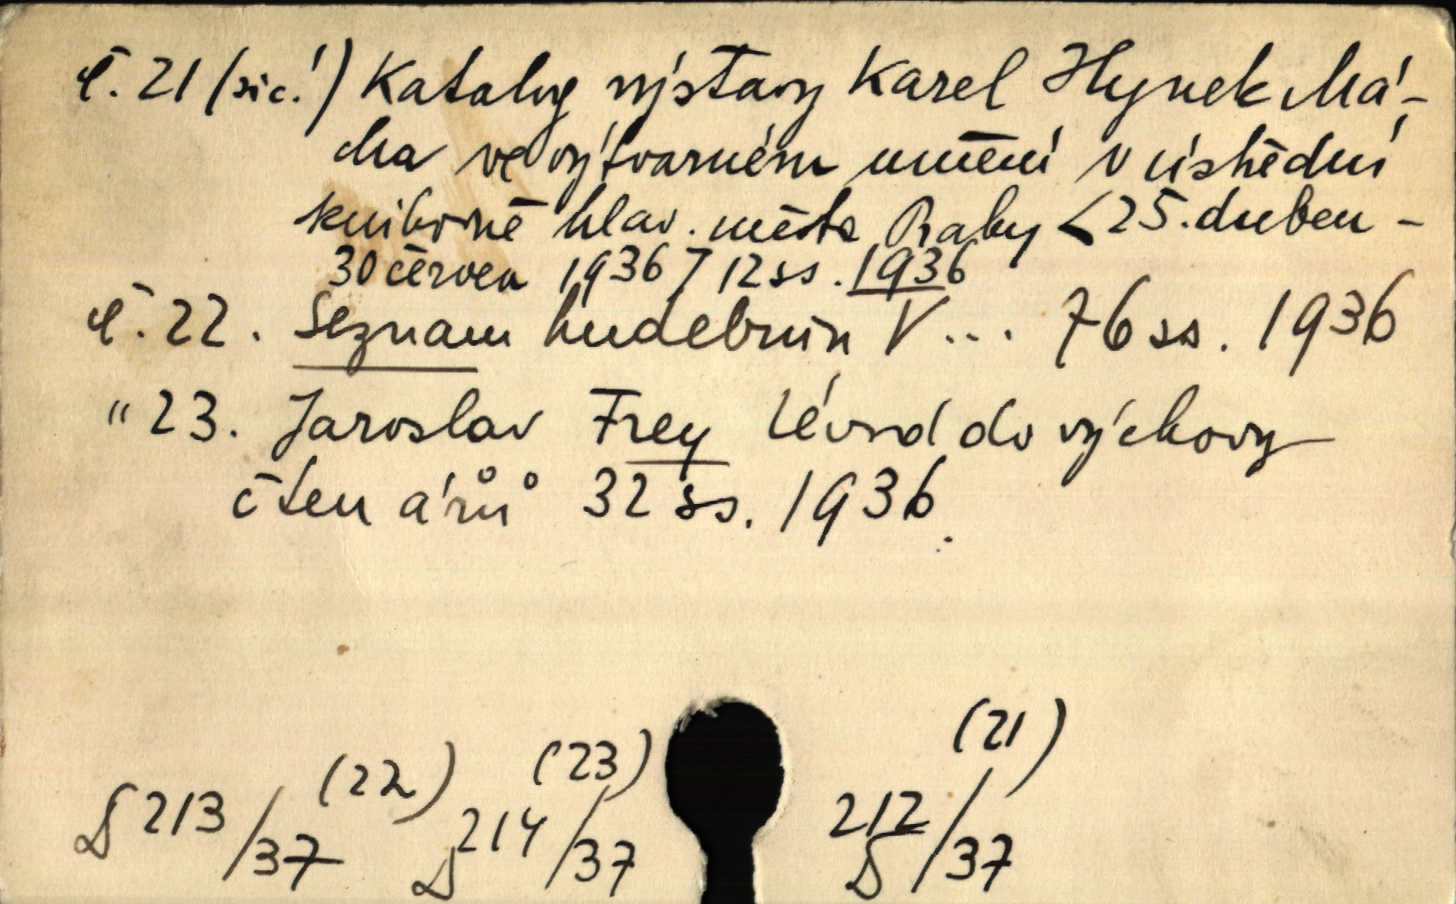 č. 21 (sic!) Katalog výstavy Karel Hynek Má-
cha ve výtvarném umění v ústřední
knihovně hlav. města Prahy <25. duben -
30 červen 1936> 12 ss. 1936
č. 22. Seznam hudebnin V... 76 ss. 1936
" 23. Jaroslav Frey Úvod do výchovy
čtenářů 32 ss. 1936.
(22) (23) (21)
D 213/37 D 214/37 D 212/37